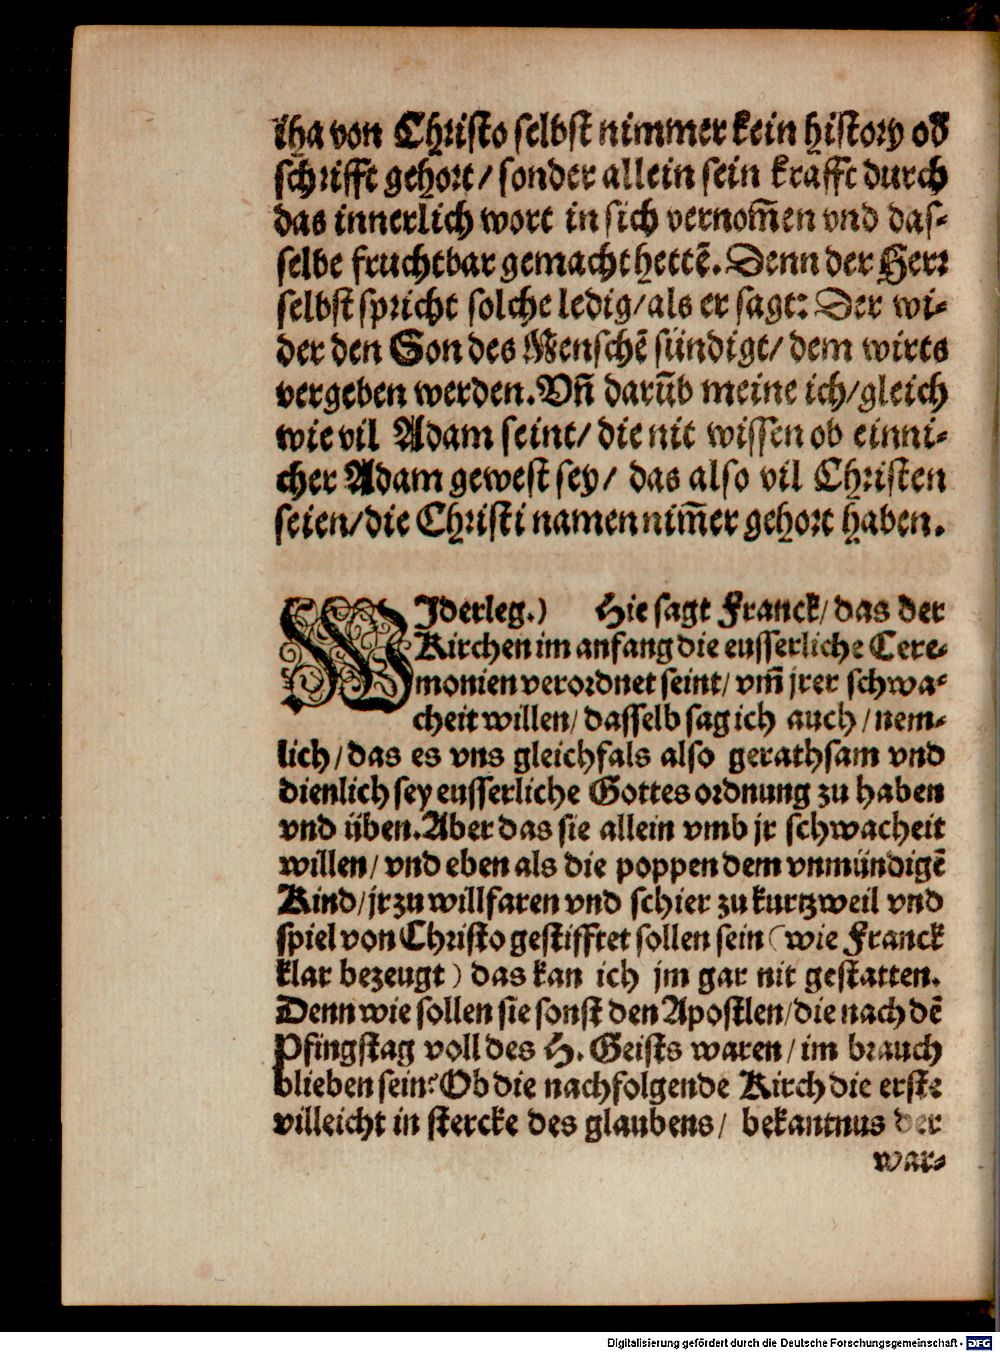 tha von Christo selbst nimmer kein history od
schrifft gehort/ sonder allein sein krafft durch
das innerlich wort in sich vernom̃en vnd das-
selbe fruchtbar gemacht hettẽ. Denn der Herr
selbst spricht solche ledig/als er sagt: Der wi-
der den Son des Menschẽ sündigt/ dem wirts
vergeben werden. Vñ darũb meine ich/gleich
wie vil Adam seint/ die nit wissen ob einni-
cher Adam gewest sey/ das also vil Christen
seien/die Christi namen nim̃er gehort haben.
WIderleg.) Hie sagt Franck/ das der
Kirchen im anfang die eusserliche Cere-
monien verordnet seint/ vm̃ jrer schwa-
cheit willen/ dasselb sag ich auch/ nem-
lich/ das es vns gleichfals also gerathsam vnd
dienlich sey eusserliche Gottes ordnung zu haben
vnd üben. Aber das sie allein vmb jr schwacheit
willen/ vnd eben als die poppen dem vnmündigẽ
Kind/ jr zu willfaren vnd schier zu kurtzweil vnd
spiel von Christo gestifftet sollen sein (wie Franck
klar bezeugt) das kan ich jm gar nit gestatten.
Denn wie sollen sie sonst den Apostlen/die nach dẽ
Pfingstag voll des H. Geists waren/ im brauch
blieben sein? Ob die nachfolgende Kirch die erste
villeicht in stercke des glaubens/ bekantnus der
war-
Digitalisierung gefördert durch die Deutsche Forschungsgemeinschaft - DFG